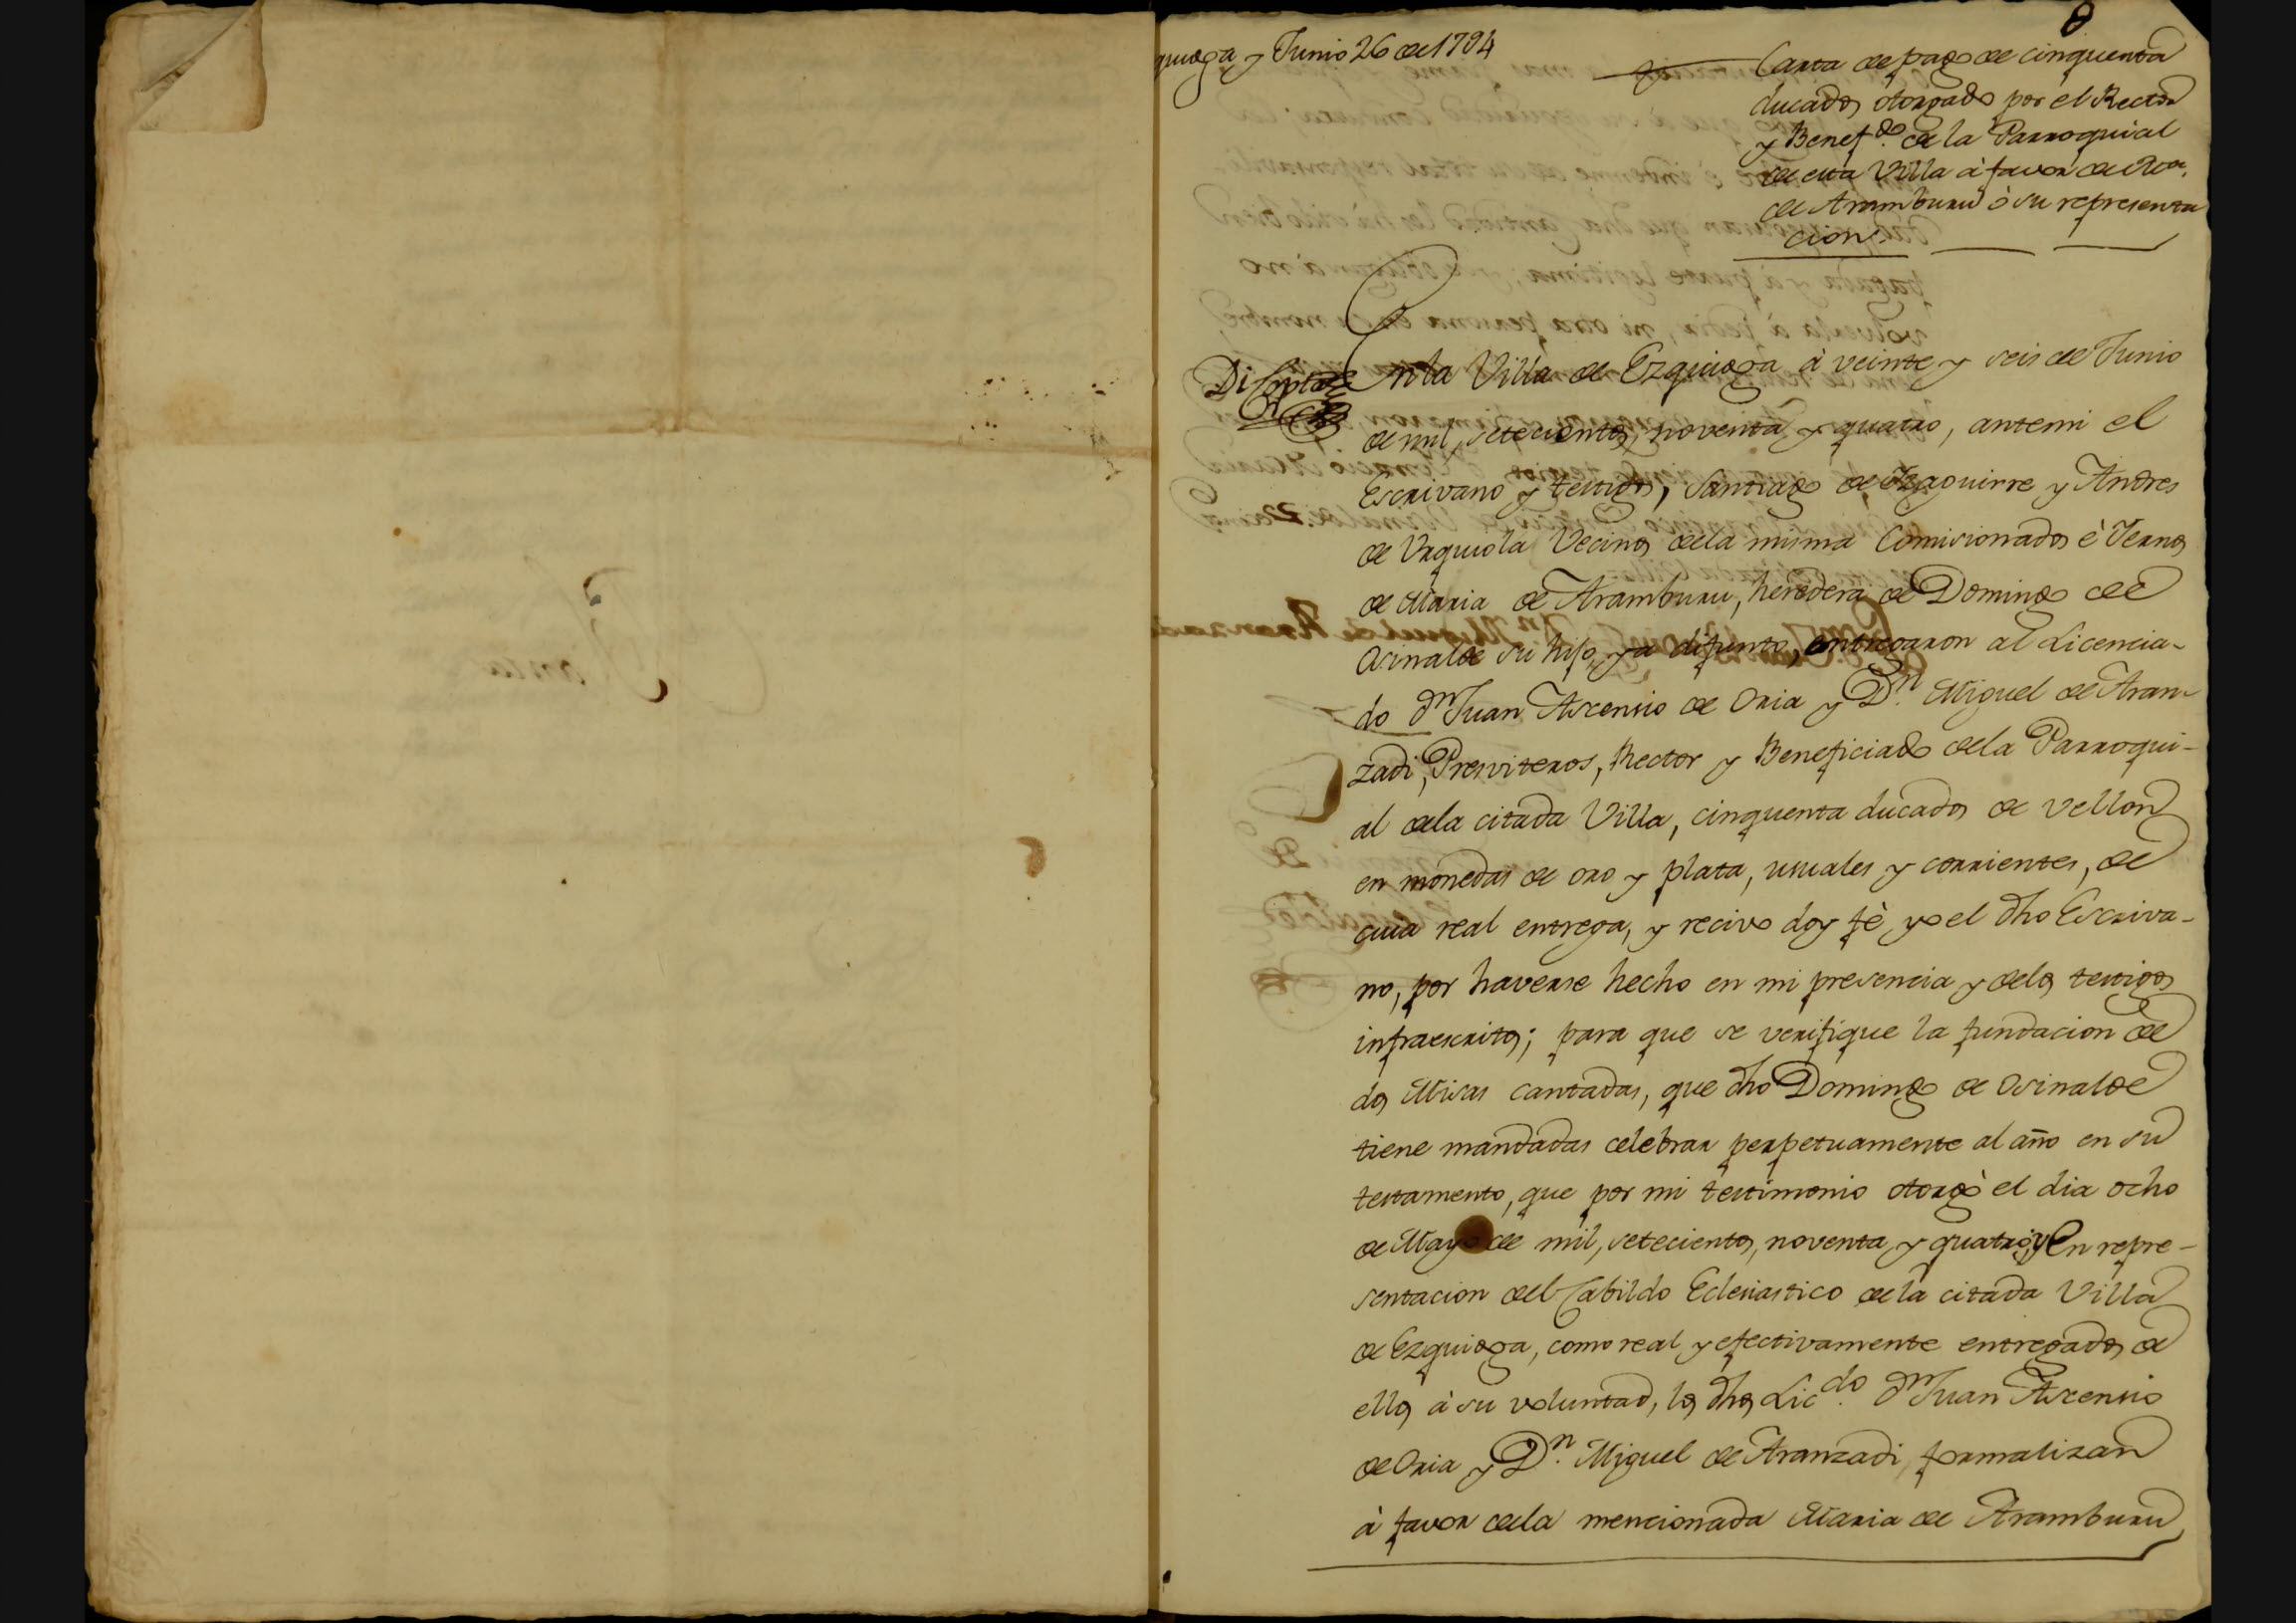 quioga y Junio 26 de 1794
8
Carta de pago de cinquenta
ducados otorgado por el Rector
y Benef.do de la Parroquial
de esta Villa à favor de Ma.
de Aramburu ò su representa
cion.
Di Copia
En la Villa de Ezquioga à veinte y seis de Junio
de mil, setecientos, noventa y quatro, antemi el
Escrivano y testigos, Santiago de Izaguirre y Andres
de Urquiola Vecinos dela misma Comisionados è Yernos
de Maria de Aramburu, heredera de Domingo de
Osinalde su hijo, ya difunto, entregaron al Licencia-
do Dn Juan Ascensio de Oria y Dn. Miguel de Aran-
zadi, Presviteros, Rector y Beneficiado dela Parroqui-
al dela citada Villa, cinquenta ducados de vellon
en monedas de oro y plata, usuales y corrientes, de
cuia real entrega, y recivo doy fè yo el dho Escriva-
no, por haverse hecho en mi presencia y delos testigos
infraescritos; para que se verifique la fundacion de
dos Misas cantadas, que dho Domingo de Osinalde
tiene mandadas celebrar perpetuamente al año en su
testamento, que por mi testimonio otorgò el dia ocho
de Mayo de mil, setecientos, noventa y quatro; y en repre-
sentacion del Cabildo Eclesiastico dela citada Villa
de Ezquioga, como real y efectivamente entregados de
ellos à su voluntad, los dhos Lic.do Dn Juan Ascensio
de Oria y Dn. Miguel de Aranzadi, formalizan
à favor dela mencionada Maria de Aramburu